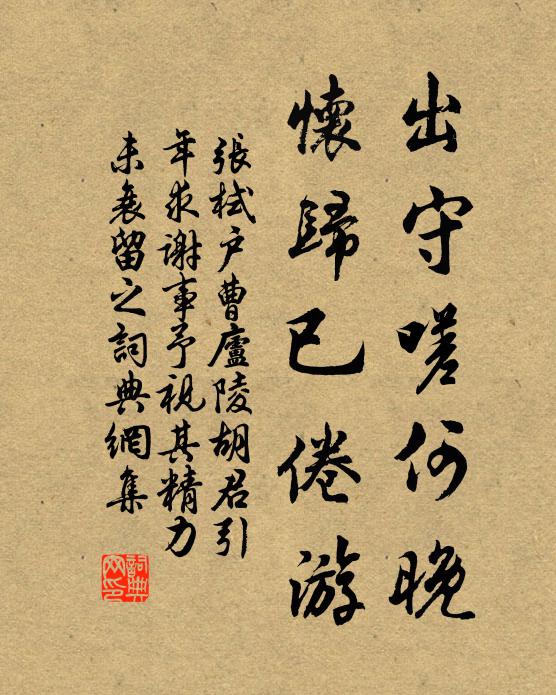 出守嗟何晚
懷歸已倦游
張栻户曹廬陵胡君引
年求謝事予視其精力
未衰留之詞典網集
詞典网印